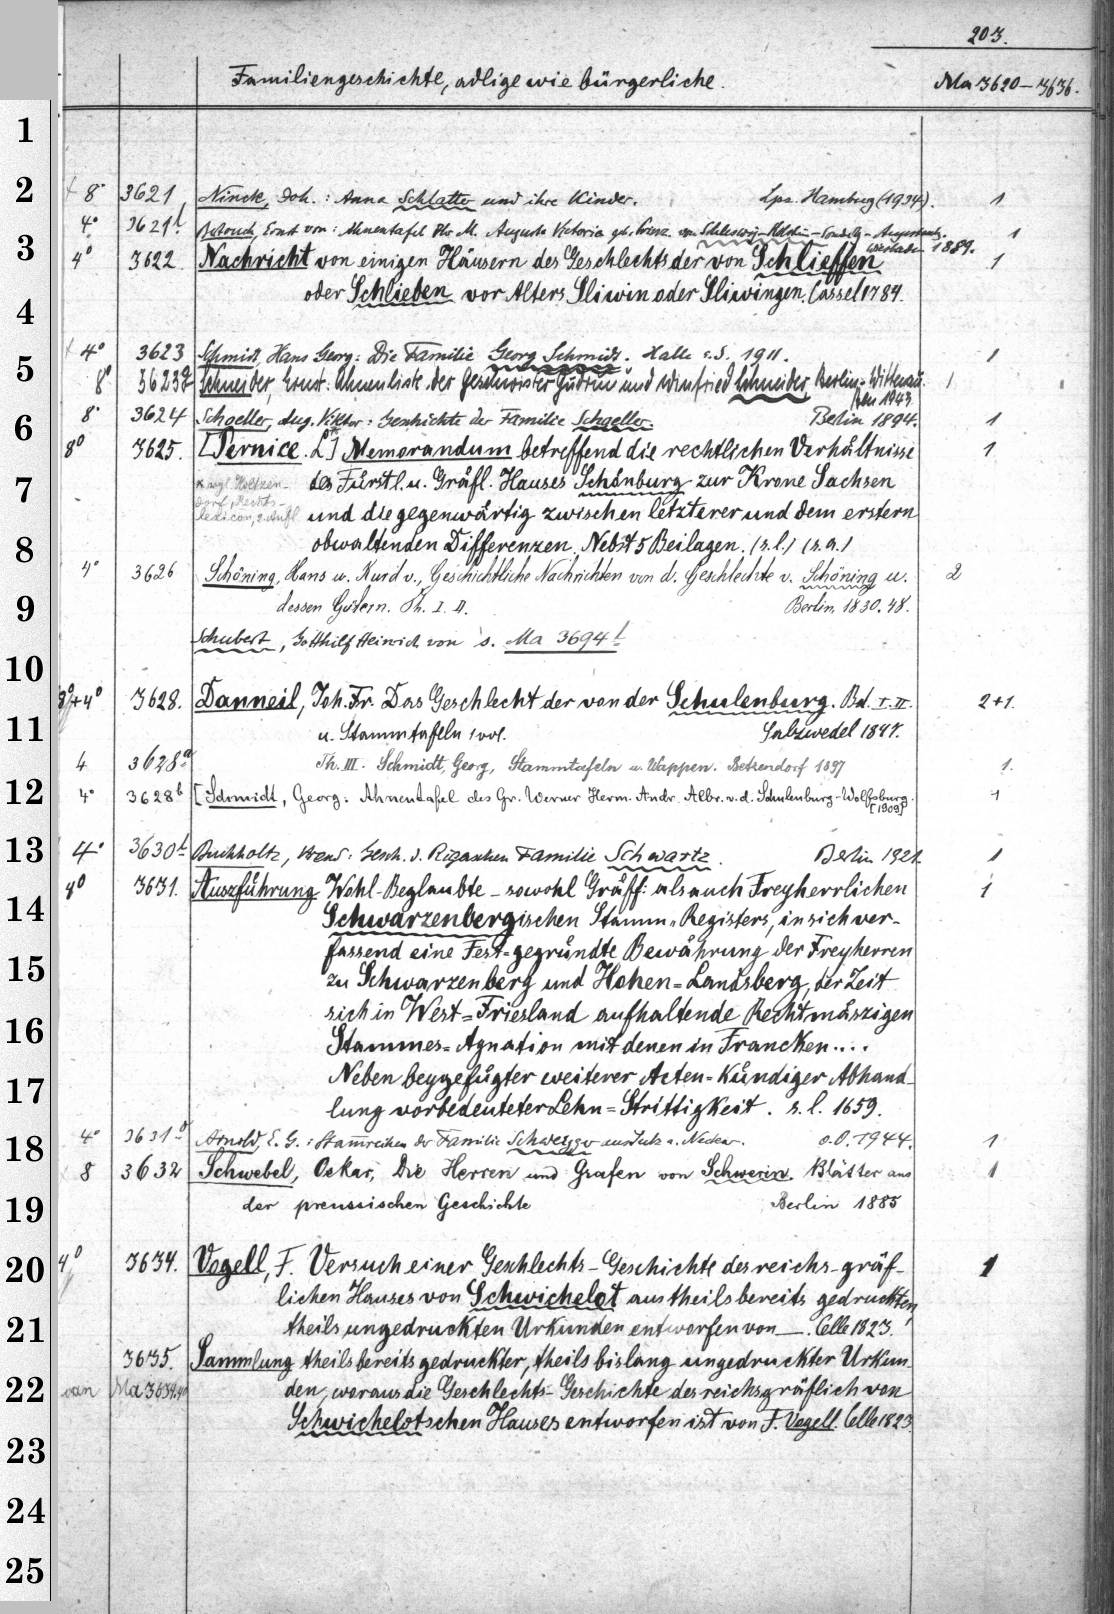 203.
Familiengeschichte, adlige wie bürgerliche.
Ma 3620-3636.
1
2
+ 8° 3621 Ninck, Joh.: Anna Schlatter und ihre Kinder. Lpz. Hamburg (1934). 1
4° 3621b Ernst von: Ahnentafel Ihr. M. Auguste Victoria geb. Prinz. von Schleswig-Holstein-Sonderbg.-Augustenbg. 1
Wiesbaden 1889.
3
4° 3622. Nachricht von einigen Häusern des Geschlechts der von Schlieffen 1
oder Schlieben vor Alters Sliwin oder Sliwingen. Cassel 1784.
4
+ 4° 3623 Schmidt, Hans Georg: Die Familie Georg Schmidt. Halle a. S. 1911. 1
5
8° 3623g Schneider, Ernst: Ahnenliste der Geschwister Gudrun und Winfried Schneider, Berlin-Wittenau. 1
1943
8° 3624 Schoeller, Aug. Viktor: Geschichte der Familie Schoeller. Berlin 1894. 1
6
8° 3625. [Pernice. L*] Memorandum betreffend die rechtlichen Verhältnisse 1
* vgl. Holtzen-
dorf, Rechts-
lexicon, 2. Aufl
des Fürstl. u. Gräfl. Hauses Schönburg zur Krone Sachsen
7
und die gegenwärtig zwischen letzterer und dem erstern
obwaltenden Differenzen. Nebst 5 Beilagen. (s. l.) (s. a.)
8
4° 3626 Schöning, Hans u. Kurd v., Geschichtliche Nachrichten von d. Geschlechte v. Schöning u. 2
dessen Gütern. Th. I. II. Berlin 1830. 48.
9
Schubert, Gotthilf Heinrich von s. Ma 3694 f
10
8°+4° 3628. Danneil, Joh. Fr. Das Geschlecht der von der Schulenburg. Bd. I. II. 2+1.
11
u. Stammtafeln 1 vol. Salzwedel 1847.
4 3628a Th. III. Schmidt, Georg, Stammtafeln u. Wappen. Betzendorf 1897 1.
12
4° 3628b [Schmidt, Georg: Ahnentafel des Gr. Werner Herm. Andr. Albr. v. d. Schulenburg-Wolfsburg. 1
[1909]
13
4° 3630b Buchholtz, Arend: Gesch. d. Rigaschen Familie Schwartz. Berlin 1921. 1
4° 3631. Auszführung Wohl-Beglaubte- sowohl Gräff: als auch Freyherrlichen 1
14
Schwarzenbergischen Stamm-Registers, in sich ver-
fassend eine Fest-gegründte Bewährung der Freyherren
15
zu Schwarzenberg und Hohen-Landsberg, der Zeit
sich in West-Friesland aufhaltende Rechtmäszigen
16
Stammes-Agnation mit denen in Francken....
Neben beygefügter weiterer Acten-Kündiger Abhand-
17
lung vorbedeuteter Lehn-Strittigkeit. s. l. 1659.
18
4° 3631a Arnold, E. G.: Stammreihen der Familie Schweizer aus Sulz a. Neckar. o. O. 1944. 1
8 3632 Schwebel, Oskar, Die Herren und Grafen von Schwerin. Blätter aus 1
19
der preussischen Geschichte Berlin 1885
20
4° 3634. Vogell, F. Versuch einer Geschlechts-Geschichte des reichs-gräf- 1
lichen Hauses von Schwichelot aus theils bereits gedruckten,
21
theils ungedruckten Urkunden entworfen von —. Celle 1823.
3635. Sammlung theils bereits gedruckter, theils bislang ungedruckter Urkun-
22
an Ma 3634.4° den, woraus die Geschlechts-Geschichte des reichsgräflich von
Schwichelotschen Hauses entworfen ist von F. Vogell. Celle 1823.
23
24
25